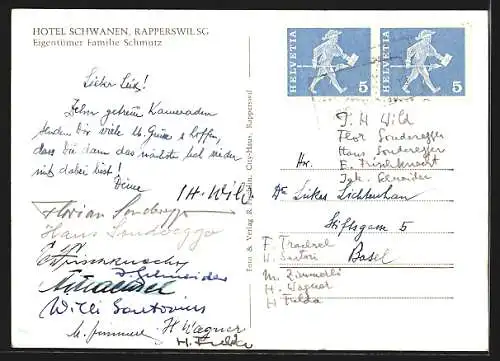 HOTEL SCHWANEN, RAPPERSWIL SG
Eigentümer Familie Schmutz
Lieber Lux!
Zehn getreue Kameraden
senden Dir viele lb. Grüsse & hoffen,
dass Du dann das nächste mal wieder
mit dabei bist!
Deine
H. Wild
Florian Sonderegger
Hans Sonderegger
E. Frischknecht
J. Schneider
F. Traehsel
Willi Santorius
M. Zimmerli
H Wagner
H. Fulda
Foto & Verlag Rapperswil
HELVETIA 5
HELVETIA 5
H Wild
Flor Sonderegger
Hans Sonderegger
E. Frischknecht
Jak. Schneider
Hr.
Lukas Lichtenhan
Stiftsgasse 5
Basel
F. Traehsel
W. Sartori
M. Zimmerli
H. Wagner
H Fulda